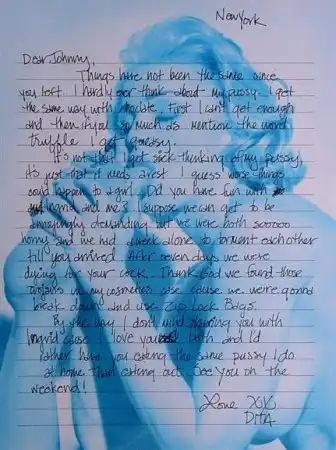 New York
Dear Johnny,
Things have not been the same since
you left. I hardly ever think about my pussy. I get
the same way with chocolate. First I can't get enough
and then if you so much as mention the word
truffle I get queasy.
It's not that I get sick thinking of my pussy,
it's just that it needs a rest. I guess worse things
could happen to a girl. Did you have fun with
Ingrid and me? I suppose we can get to be
annoyingly demanding but we were both sooooo
horny and we had a week alone to torment each other
till you arrived. After seven days we were
dying for your cock. Thank God we found those
Trojans in my cosmetics case cause we were gonna
break down and use Zip Lock Bags.
By the way I don't mind sharing you with
Ingrid cause I love you both and I'd
rather have you eating the same pussy I do
at home than eating out. See you on the
weekend!
Love XX
DITA